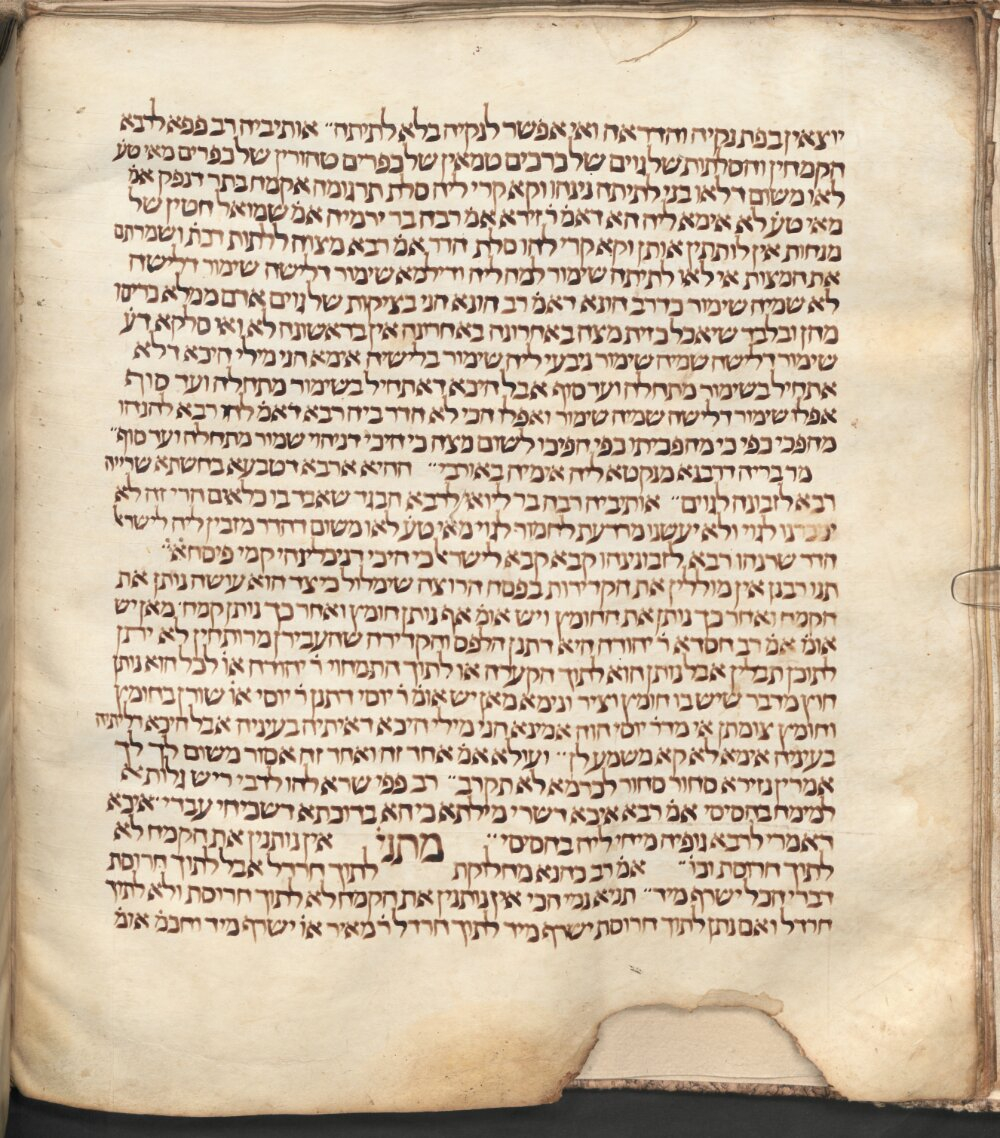 יוצאין בפת נקיה והדראה ואי אפשר לנקיה בלא לתיתה״ אותיביה רב פפא לרבא
הקמחין והסלתות של גוים של כרכים טמאין של כפרים טהורין של כפרים מאי טע׳
לאו משום דלאו בני לתיתה נינהו וקא קרי ליה סלת תרגומה אקמח בתר דנפק אמ׳
מאי טע׳ לא אימא ליה הא דאמ׳ ר׳ זירא אמ׳ רבה בר ירמיה אמ׳ שמואל חטין של
מנחות אין לותתין אותן וקא קרי להו סלת הדר אמ׳ רבא מצוה ללתות דכת׳ ושמרתם
את המצות אי לאו לתיתה שימור למה ליה ודילמא שימור דלישה שימור דלישה
לא שמיה שימור כדרב הונא דאמ׳ רב הונא הני בציקות של גוים אדם ממלא כריסו
מהן ובלבד שיאכל כזית מצה באחרונה באחרונה אין בראשונה לא ואו סלקא דע׳
שימור דלישה שמיה שימור ניבעי ליה שימור בלישיה אימא הני מילי היכא דלא
אתחיל בשימור מתחלה ועד סוף אבל היכא דאתחיל בשימור מתחלה ועד סוף
אפלו שימור דלישה שמיה שימור ואפלו הכי לא הדר ביה רבא דאמ׳ להו רבא להנהו
מהפכי כפי כי מהפכיתו כפי הפיכו לשום מצה כי היכי דניהוי שמור מתחלה ועד סוף״
מר בריה דרבנא מנקטא ליה אימיה באורבי״ ההיא ארבא דטבעא בחשתא שרייה
רבא לזבונה לגוים״ אותיביה רבה בר ליואי לרבא הבגד שאבד בו כלאים הרי זה לא
ימכרנו לגוי ולא יעשנו מרדעת לחמור לגוי מאי טע׳ לאו משום דהדר מזבין ליה לישרא׳
הדר שרנהו רבא לזבונינהו קבא קבא לישרא׳ כי היכי דניכלינהי קמי פיסחא״
תנו רבנן אין מוללין את הקדירות בפסח הרוצה שימלול כיצד הוא עושה נותן את
הקמח ואחר כך נותן את החומץ ויש אומ׳ אף נותן חומץ ואחר כך נותן קמח׳ מאן יש
אומ׳ אמ׳ רב חסדא ר׳ יהודה היא דתנן הלפס והקדירה שהעבירן מרותחין לא יתן
לתוכן תבלין אבל נותן הוא לתוך הקערה או לתוך התמחוי ר׳ יהודה או׳ לכל הוא נותן
חוץ מדבר שיש בו חומץ וציר ונימא מאן יש אומ׳ ר׳ יוסי דתנן ר׳ יוסי או׳ שורן בחומץ
וחומץ צומתן אי מדר׳ יוסי הוה אמינא הני מילי היכא דאיתיה בעיניה אבל היכא דליתיה
בעיניה אימא לא קא משמע לן״ ועולא אמ׳ אחד זה ואחד זה אסור משום לך לך
אמרין נזירא סחור סחור לכרמא לא תקרב״ רב פפי שרא להו לדבי ריש גלותא
למימח בחסיסי אמ׳ רבא איכא דשרי מילתא כי הא בדוכתא דשכיחי עבדי איכא
דאמרי לרבא גופיה מייחי ליה בחסיסי״ מתני׳ אין נותנין את הקמח לא
לתוך חרוסת וכו׳״ אמ׳ רב כהנא מחלוקת לתוך חרדל אבל לתוך חרוסת
דברי הכל ישרף מיד״ תניא נמי הכי אין נותנין את הקמח לא לתוך חרוסת ולא לתוך
חרדל ואם נתן לתוך חרוסת ישרף מיד לתוך חרדל ר׳ מאיר או׳ ישרף מיד וחכמ׳ אומ׳